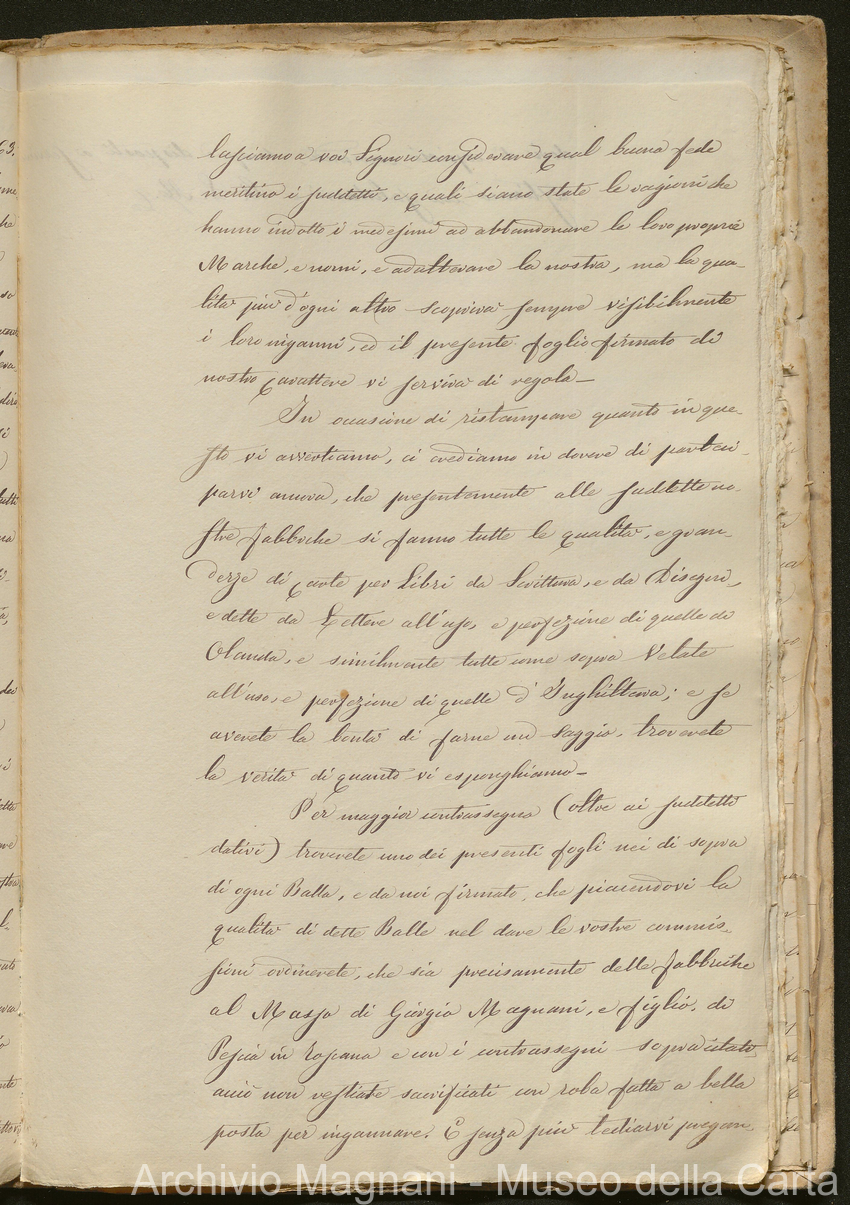 lasciamo a voi Signori considerare qual buona fede
meritino i suddetti, e quali siano state le ragioni che
hanno indotto i medesimi ad abbandonare le loro proprie
Marche, e nomi, e adalterare la nostra, ma la qua-
lità più d'ogni altro scoprirà sempre visibilmente
i loro inganni, ed il presente foglio firmato di
nostro Carattere vi servirà di regola_
In occasione di ristampare quanto in que-
sto vi avvertiamo, ci crediamo in dovere di parteci-
parvi ancora, che presentemente alle suddette no-
stre fabbriche si fanno tutte le qualità, e gran-
dezze di Carte per Libri da Scrittura, e da Disegni,
e dette da Lettere all'uso, e perfezione di quelle di
Olanda, e similmente tutte come sopra Velate
all'uso, e perfezione di quelle d'Inghilterra; e se
averete la bontà di farne un saggio, troverete
la verità di quanto vi esponghiamo_
Per maggior contrassegno (oltre ai suddetti
dativi) troverete uno dei presenti fogli nei di sopra
di ogni Balla, e da noi firmato, che piacendovi la
qualità di dette Balle nel dare le vostre commis-
sioni ordinerete, che sia precisamente delle fabbriche
al Masso di Giorgio Magnani, e figlio, di
Pescia in Toscana e con i contrassegni sopra citati
acciò non restiate sacrificati con roba fatta a bella
posta per ingannare. E senza più tediarvi pregan-
Archivio Magnani - Museo della Carta